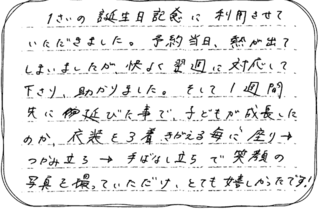 1さいの誕生日記念に利用させて
いただきました。予約当日、熱が出て
しまいましたが、快よく翌週に対応して
下さり、助かりました。そして1週間
先に伸延びた事で、子どもが成長した
のか、衣装を3着きがえる毎に座り→
つかみ立ち→手ばなし立ちで笑顔の
写真を撮っていただけ、とても嬉しかったです!